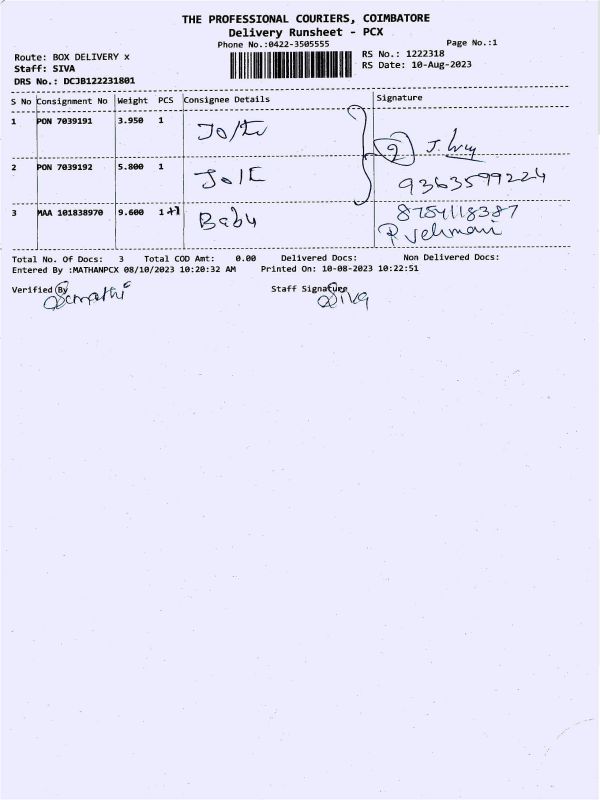 THE PROFESSIONAL COURIERS, COIMBATORE
Delivery Runsheet - PCX
Phone No.:0422-3505555
Page No.:1
Route: BOX DELIVERY x
RS No.: 1222318
Staff: SIVA
RS Date: 10-Aug-2023
DRS No.: DCJB122231801
S No Consignment No Weight PCS Consignee Details Signature
1 PON 7039191 3.950 1
2 PON 7039192 5.800 1
9363599224
3 MAA 101838970 9.600 1+1 Babu
8754118387
Total No. Of Docs: 3 Total COD Amt: 0.00 Delivered Docs: Non Delivered Docs:
Entered By :MATHANPCX 08/10/2023 10:20:32 AM Printed On: 10-08-2023 10:22:51
Verified By Staff Signature
Siva